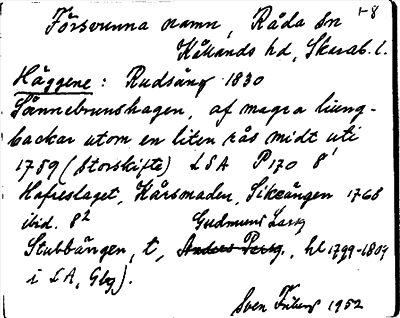 1-8
Försvunna namn, Råda sn
Kållands hd, Skarab. l.
Häggene: Rudsäng 1830
Sännebrunshagen, af magra liung-
backar utom en liten rås midt uti
1789 (Storskifte) LSA P170 8¹
Hafreslaget, Kårsmaden, Sikeängen 1768
ibid. 8²
Gudmund Larss
Stubbängen, t, Anders Perss., hl 1799-1809
i LSA, Gbg).
Sven 1952